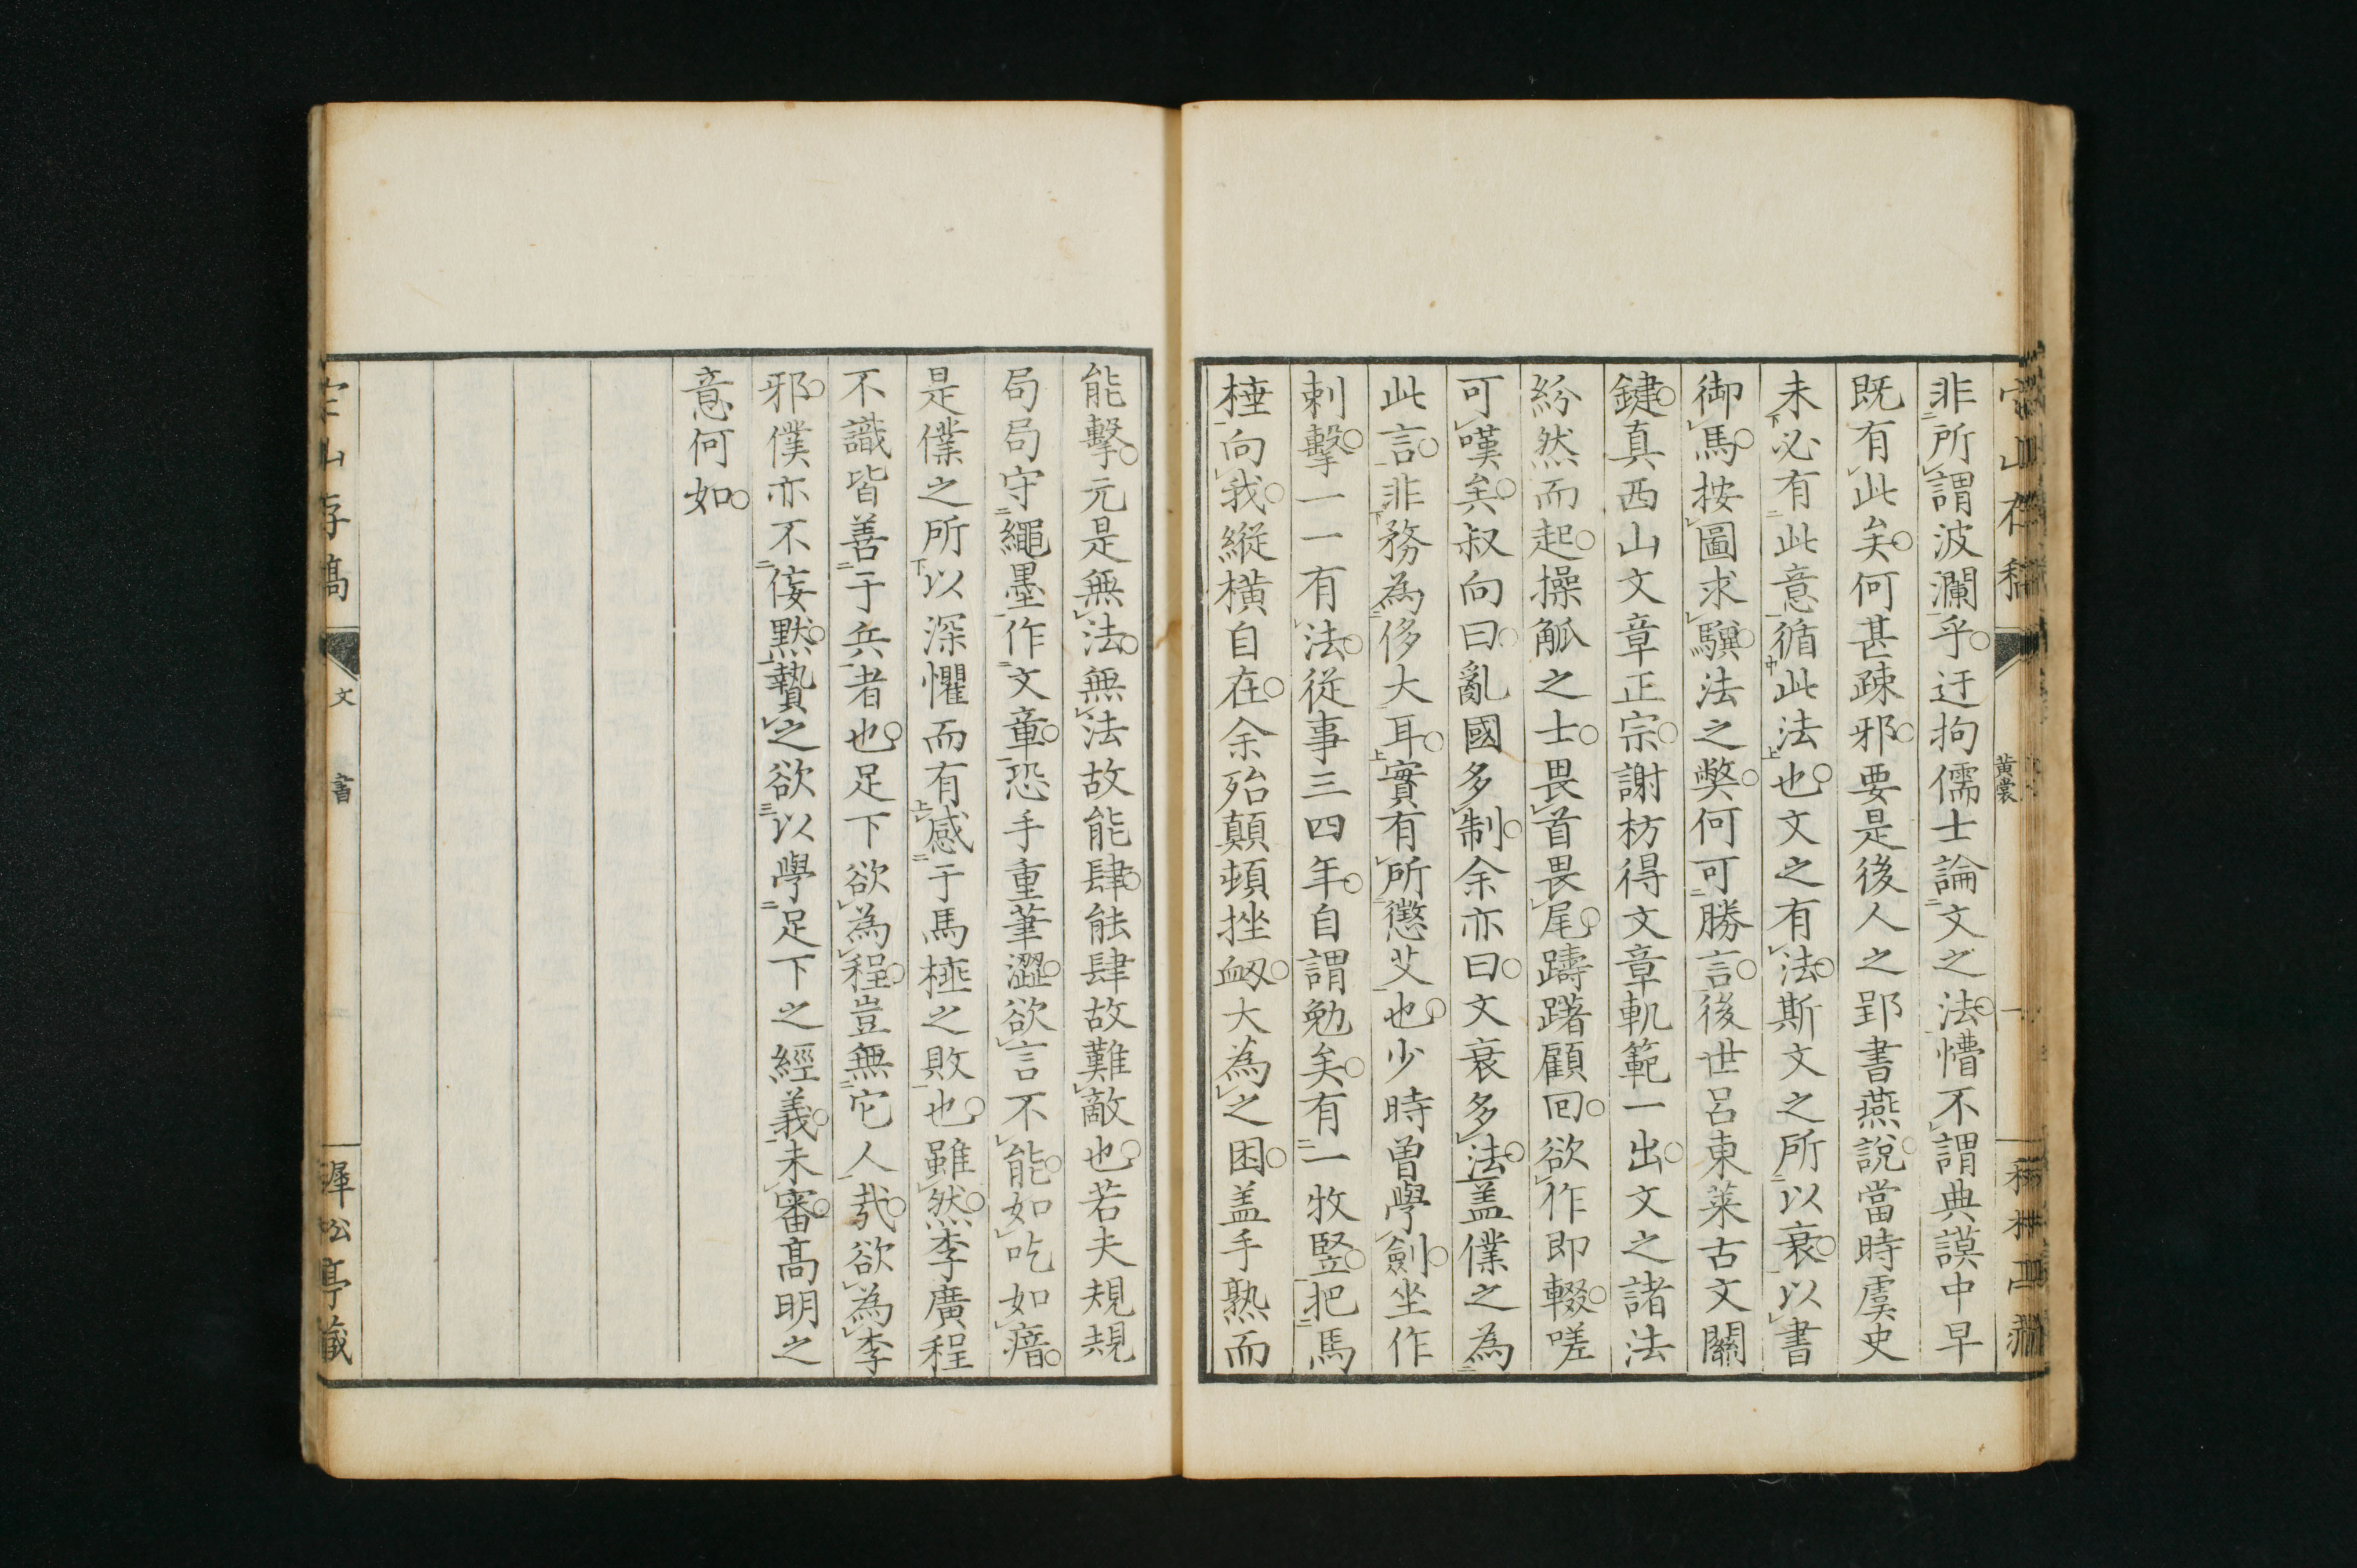 非所謂波瀾乎迂拘儒士論文之法懵不謂典謨中早
既有此矣何甚疎邪要是後人之郢書燕說當時虞史
未必有此意循此法也文之有法斯文之所以衰以書
御馬按圖求驥法之弊何可勝言後世呂東萊古文關
鍵真西山文章正宗謝枋得文章軌範一出文之諸法
紛然而起操觚之士畏首畏尾躊躇顧回欲作即輟嗟
可嘆矣叔向曰亂國多制余亦曰文衰多法盖僕之為
此言非務為侈大耳實有所懲艾也少時曽學劍坐作
刺擊一一有法從事三四年自謂勉矣有一牧豎把馬
棰向我縱横自在余殆顛頓挫衂大為之困盖手熟而
能擊元是無法無法故能肆能肆故難敵也若夫規規
局局守繩墨作文章恐手重筆澀欲言不能如吃如瘖
是僕之所以深懼而有感于馬棰之敗也雖然李廣程
不識皆善于兵者也足下欲為程豈無它人哉欲為李
邪僕亦不侫默贄之欲以學足下之經義未審高明之
意何如
山存稿
文
書
松亭藏
黃裳